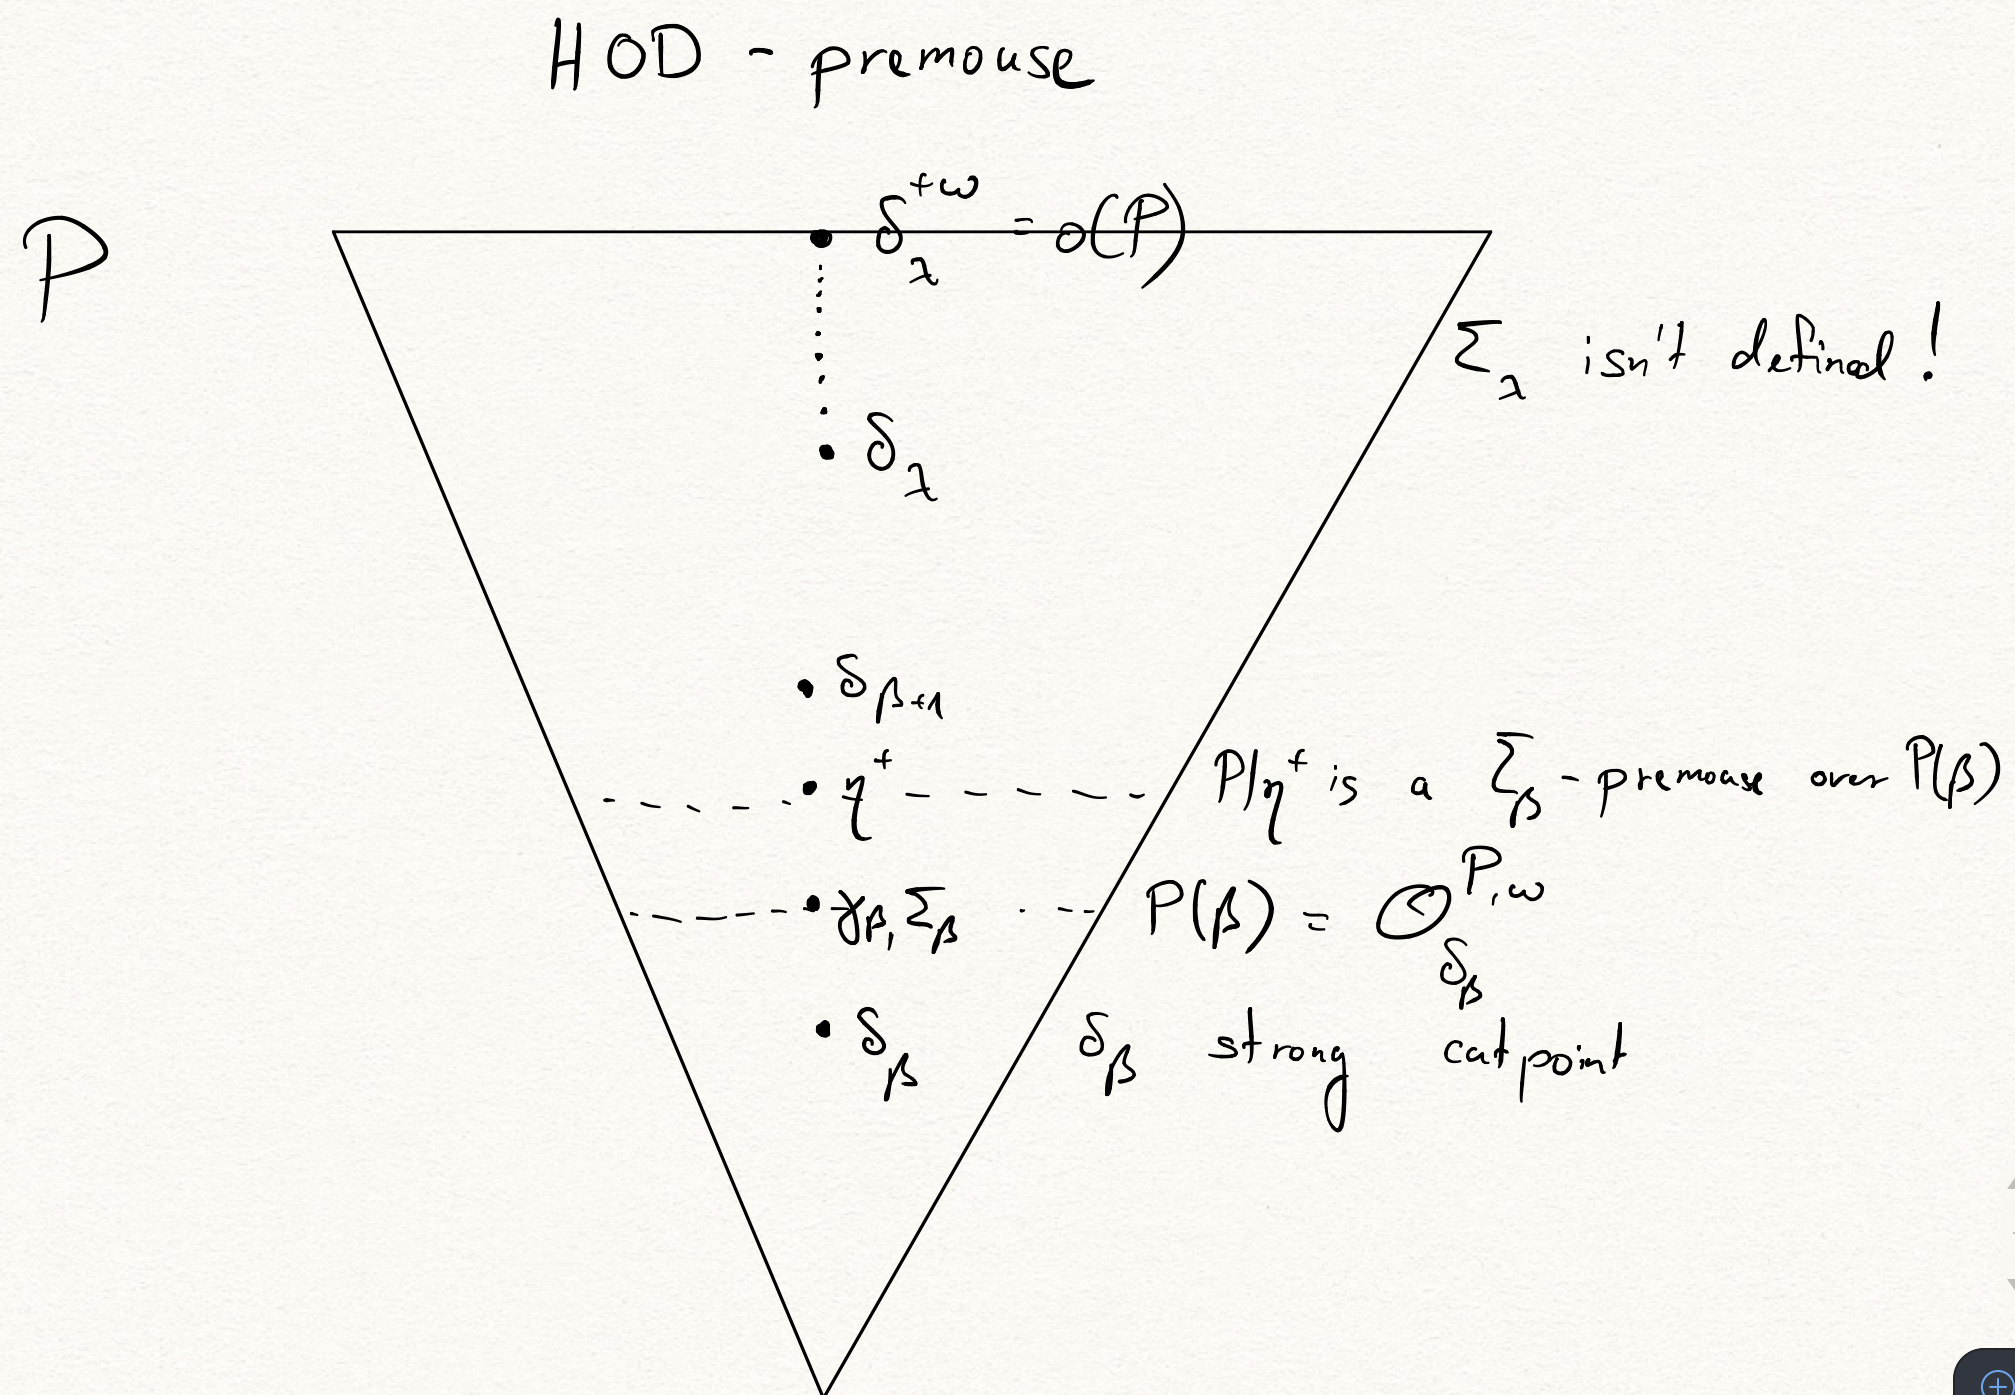 HOD - premouse
P
δ_λ^{+ω} = o(P)
Σ_λ isn't defined!
δ_λ
δ_{β+1}
η^+ P|η^+ is a Σ_β - premouse over P(β)
γ_β, Σ_β P(β) = O_{δ_β}^{P,ω}
δ_β δ_β strong cutpoint